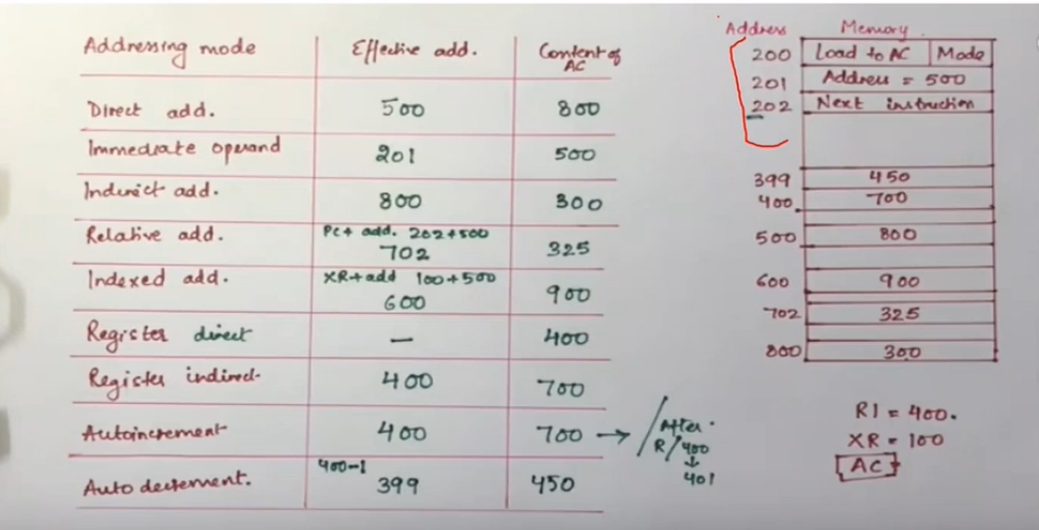 Addressing mode Effective add. Content of AC
Direct add. 500 800
Immediate operand 201 500
Indirect add. 800 300
Relative add. PC+ add. 202+500 702 325
Indexed add. XR+add 100+500 600 900
Register direct — 400
Register indirect 400 700
Autoincrement 400 700 → After. R1 400 ↓ 401
Auto decrement. 400-1 399 450
Address Memory
200 Load to AC Mode
201 Address = 500
202 Next instruction
399 450
400 700
500 800
600 900
702 325
800 300
R1 = 400.
XR = 100
AC